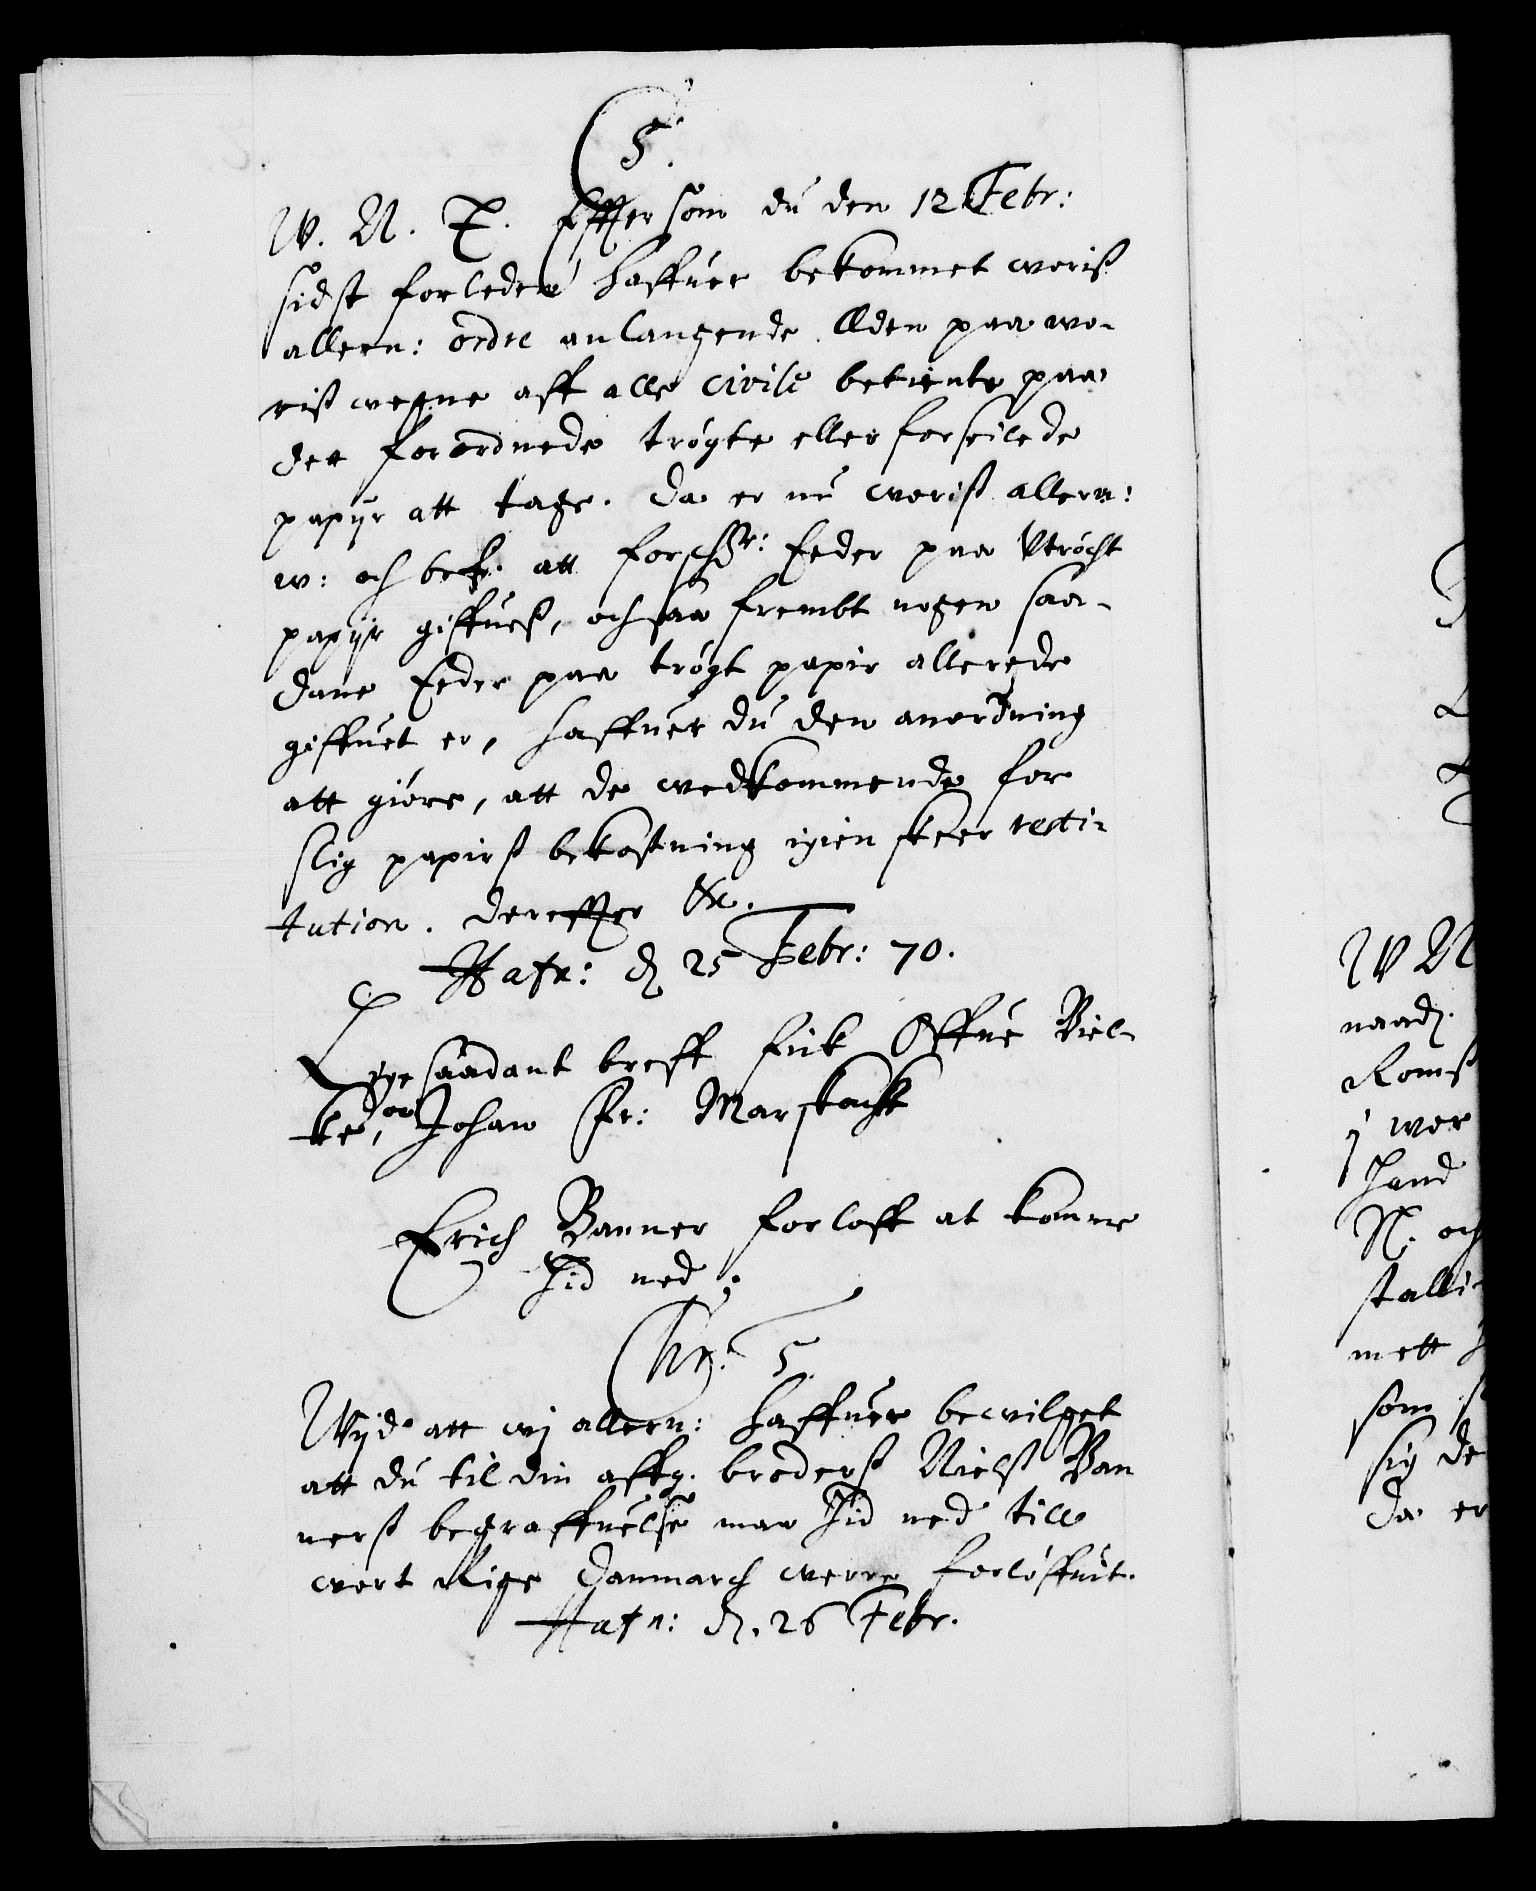 C 5.
W. N. T. Effter som du den 12 Febr:
sidst forleden haffuer bekommet woriß
allern: ordre anlangende Eden paa wo-
riß wegne aff alle civile betiente paa
det forordnede trögte eller forseilede
papijr att tage. Da er nu woriß allern:
w: och bef: att forschr: Eeder paa Vtröcht
papijr giffueß, och saa frembt nogen saa-
dane Eeder paa trögt papir allerede
giffuet er, haffuer du den anordning
att giöre, att de wedkommende for
slig papirß bekostning igien skeer resti-
tution. dereffter &c.
Hafn: d 25 Febr: 70.
Lige saadant breff fick Offue Biel-
ke, oc Johan Fr: Marskalck
Erich Banner forloff at komme
hid ned:
Chr: 5.
Wijd att wj allern: haffuer bewilget
att du til din affg. broderß Nielß Ban
nerß begraffuelse maa hid ned till
wort Rige Danmarch werre forlöffuit.
Hafn: d. 26 Febr.
W N
naad.
Romß
j wor
Hand
N. och
stalli-
mett
som
sig de
da er